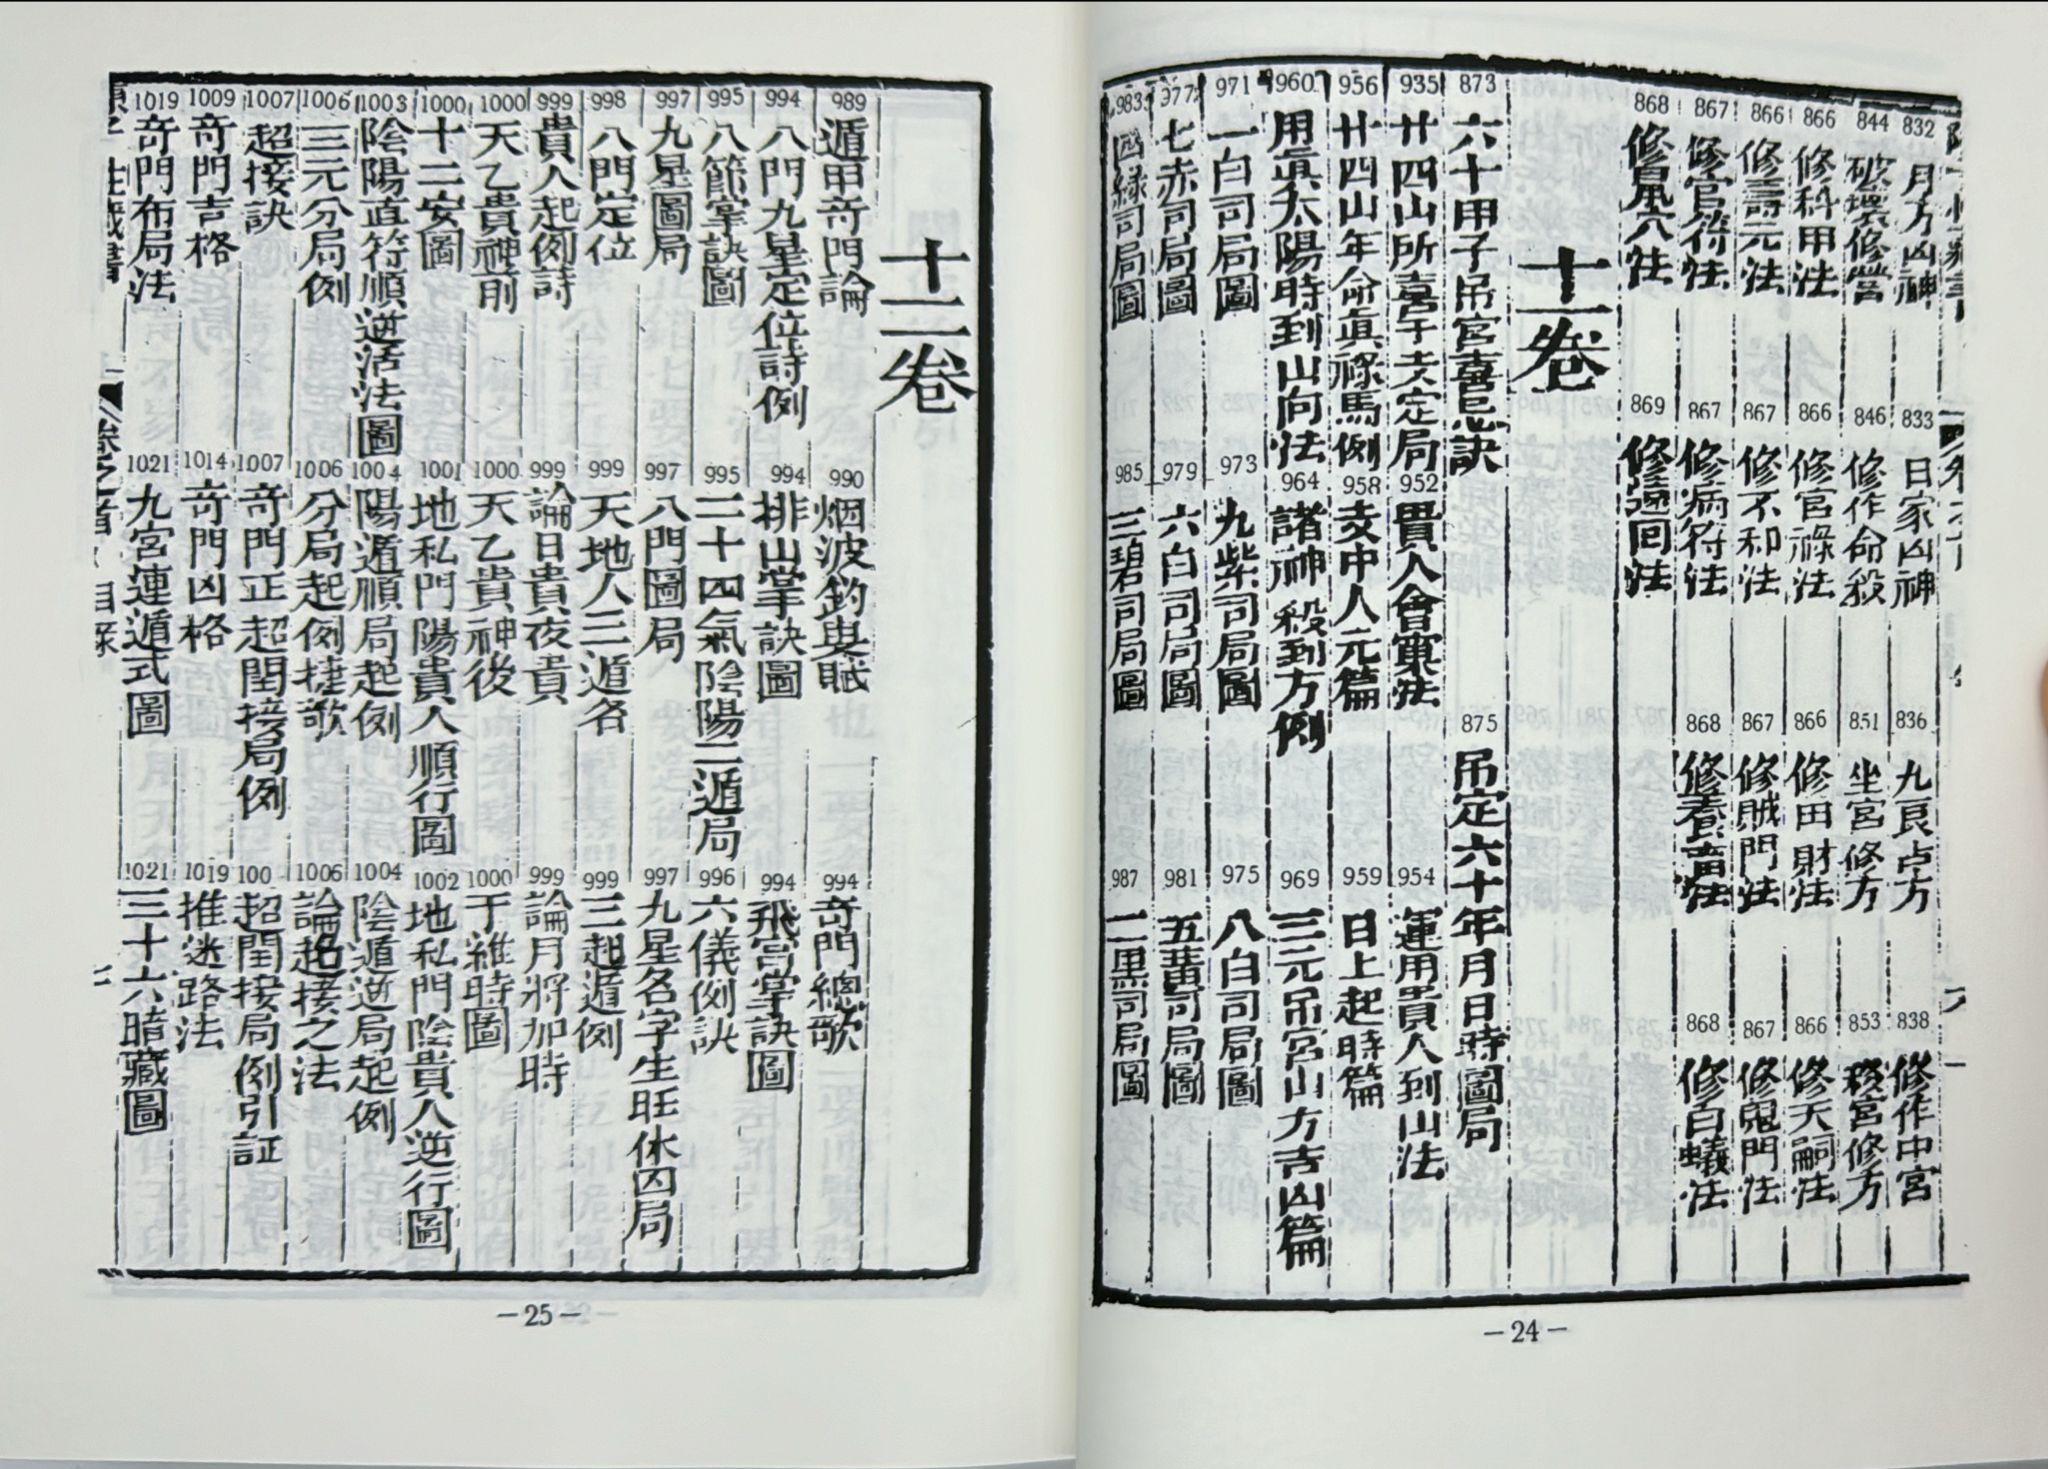 832
月方凶神
833
日家凶神
836
九良占方
838
修作中宮
844
破壞修營
846
修作命殺
851
坐宮修方
853
移宮修方
866
修科甲法
866
修官祿法
866
修田財法
866
修天嗣法
866
修壽元法
867
修不和法
867
修賊門法
867
修鬼門法
867
修官符法
867
修病符法
868
修養畜法
868
修白蟻法
868
修風穴法
869
修廻法
十一卷
873
六十甲子吊宮喜忌訣
875
吊定六十年月日時圖局
935
廿四山所喜干支定局
952
貴人會窠法
954
運用貴人到山法
956
廿四山年命眞祿馬例
958
支中人元篇
959
日上起時篇
960
用眞太陽時到山向法
964
諸神殺到方例
969
三元吊宮山方吉凶篇
971
一白司局圖
973
九紫司局圖
975
八白司局圖
977
七赤司局圖
979
六白司局圖
981
五黃司局圖
983
四綠司局圖
985
三碧司局圖
987
二黑司局圖
—24—
十二卷
989
遁甲奇門論
990
烟波釣叟賦
994
奇門總歌
994
八門九星定位詩例
994
排山掌訣圖
994
飛宮掌訣圖
995
八節掌訣圖
995
二十四氣陰陽二遁局
996
六儀例訣
997
九星圖局
997
八門圖局
997
九星名字生旺休囚局
998
八門定位
999
天地人三遁各
999
三起遁例
999
貴人起例詩
999
論日貴夜貴
999
論月將加時
1000
天乙貴神前
1000
天乙貴神後
1000
于維時圖
1000
十二安圖
1001
地私門陽貴人順行圖
1002
地私門陰貴人逆行圖
1003
陰陽直符順逆活法圖
1004
陽遁順局起例
1004
陰遁逆局起例
1006
三元分局例
1006
分局起例捷歌
1006
論超接之法
1007
超接訣
1007
奇門正超閏接局例
100
超閏接局例引証
1009
奇門吉格
1014
奇門凶格
1019
推迷路法
1019
奇門布局法
1021
九宮連遁式圖
1021
三十六暗藏圖
目錄
—25—